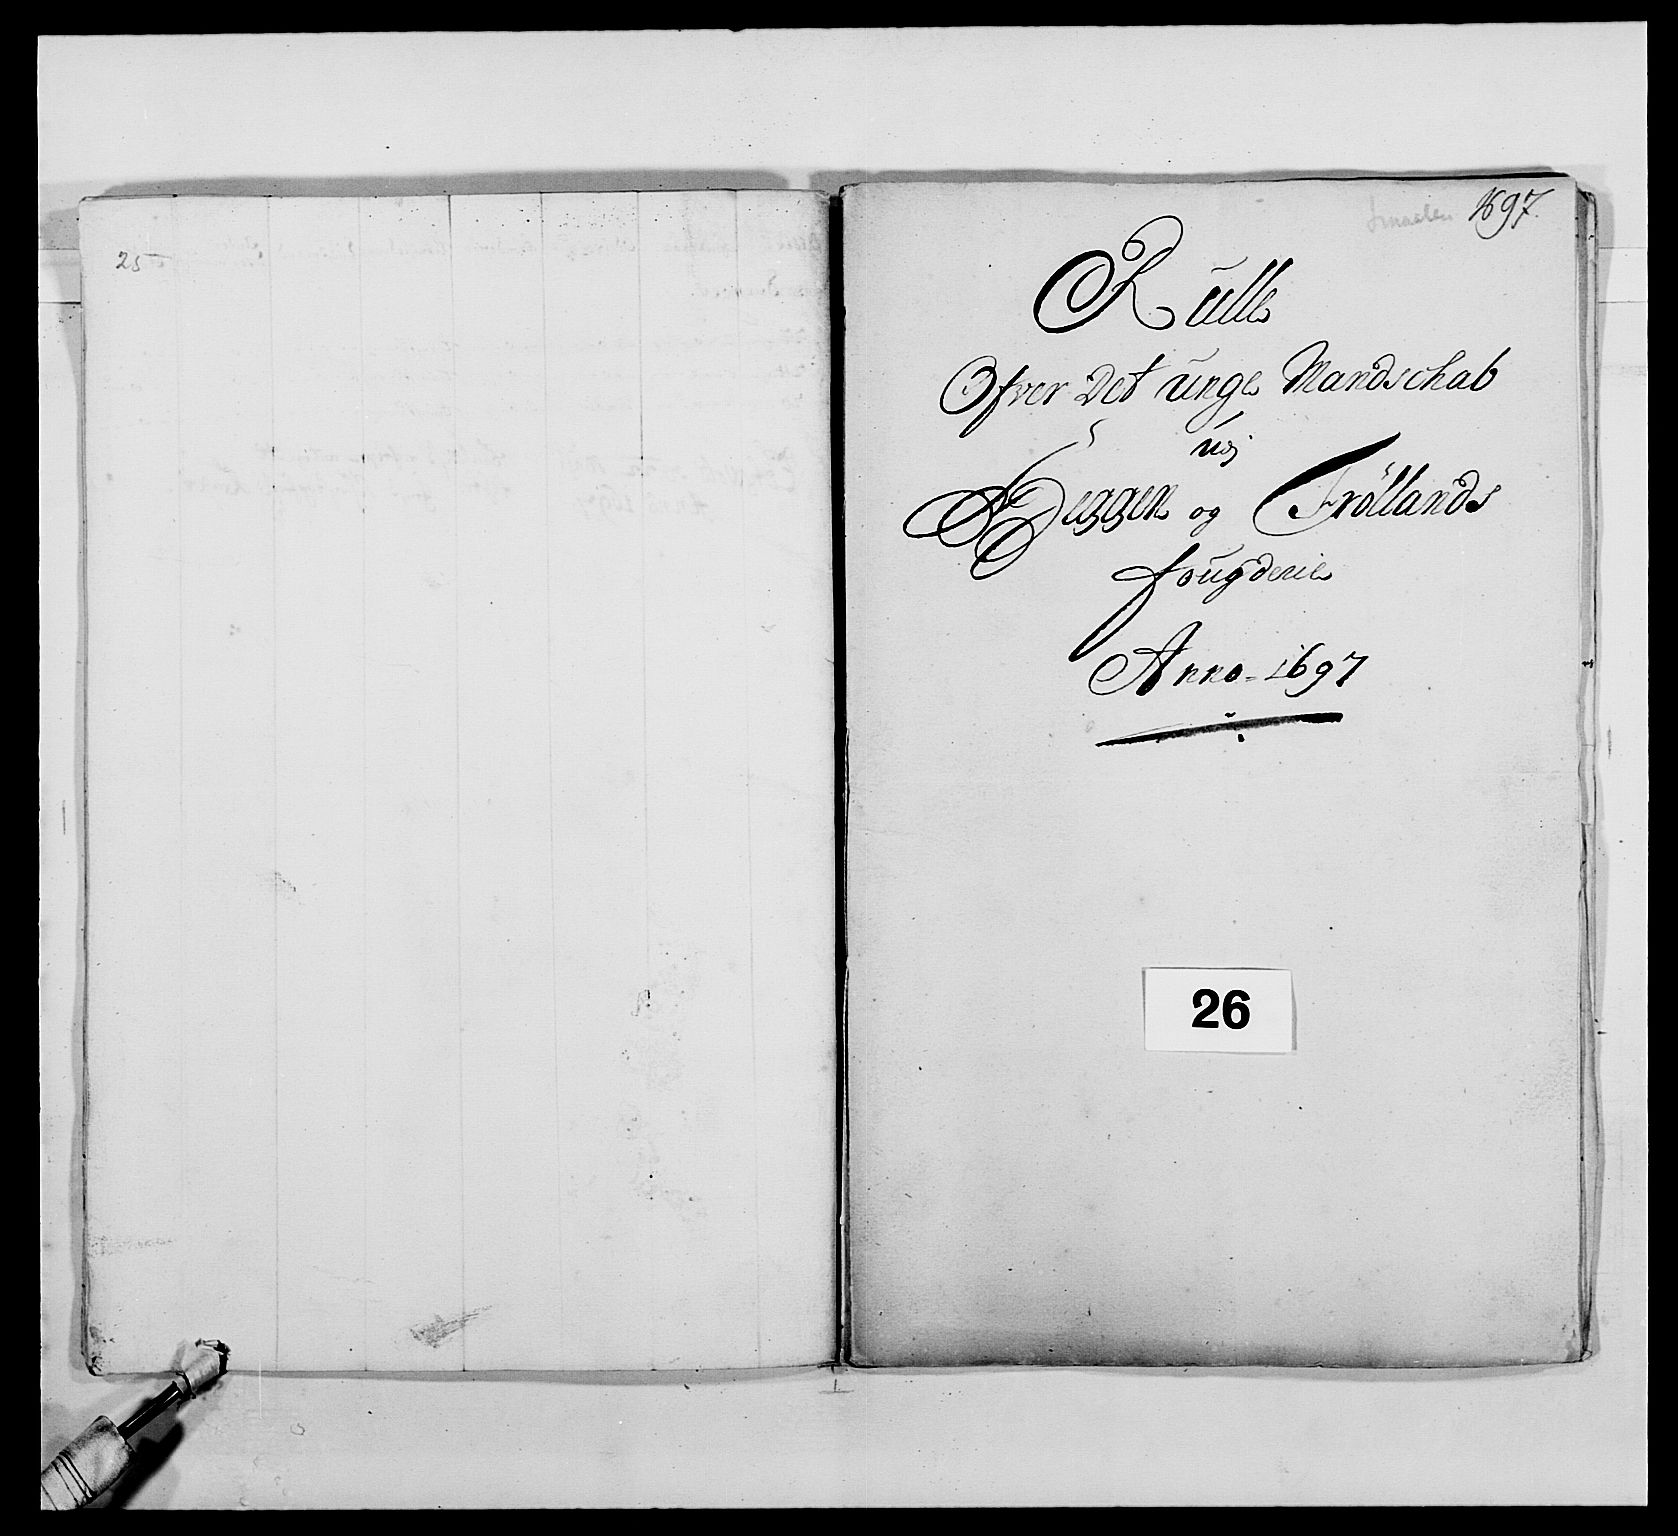 25
Smaalen 1697.
Rulle
Ofver Det unge Mandschab
udj
Heggen og Frøllands
fougderie
Anno 1697
26